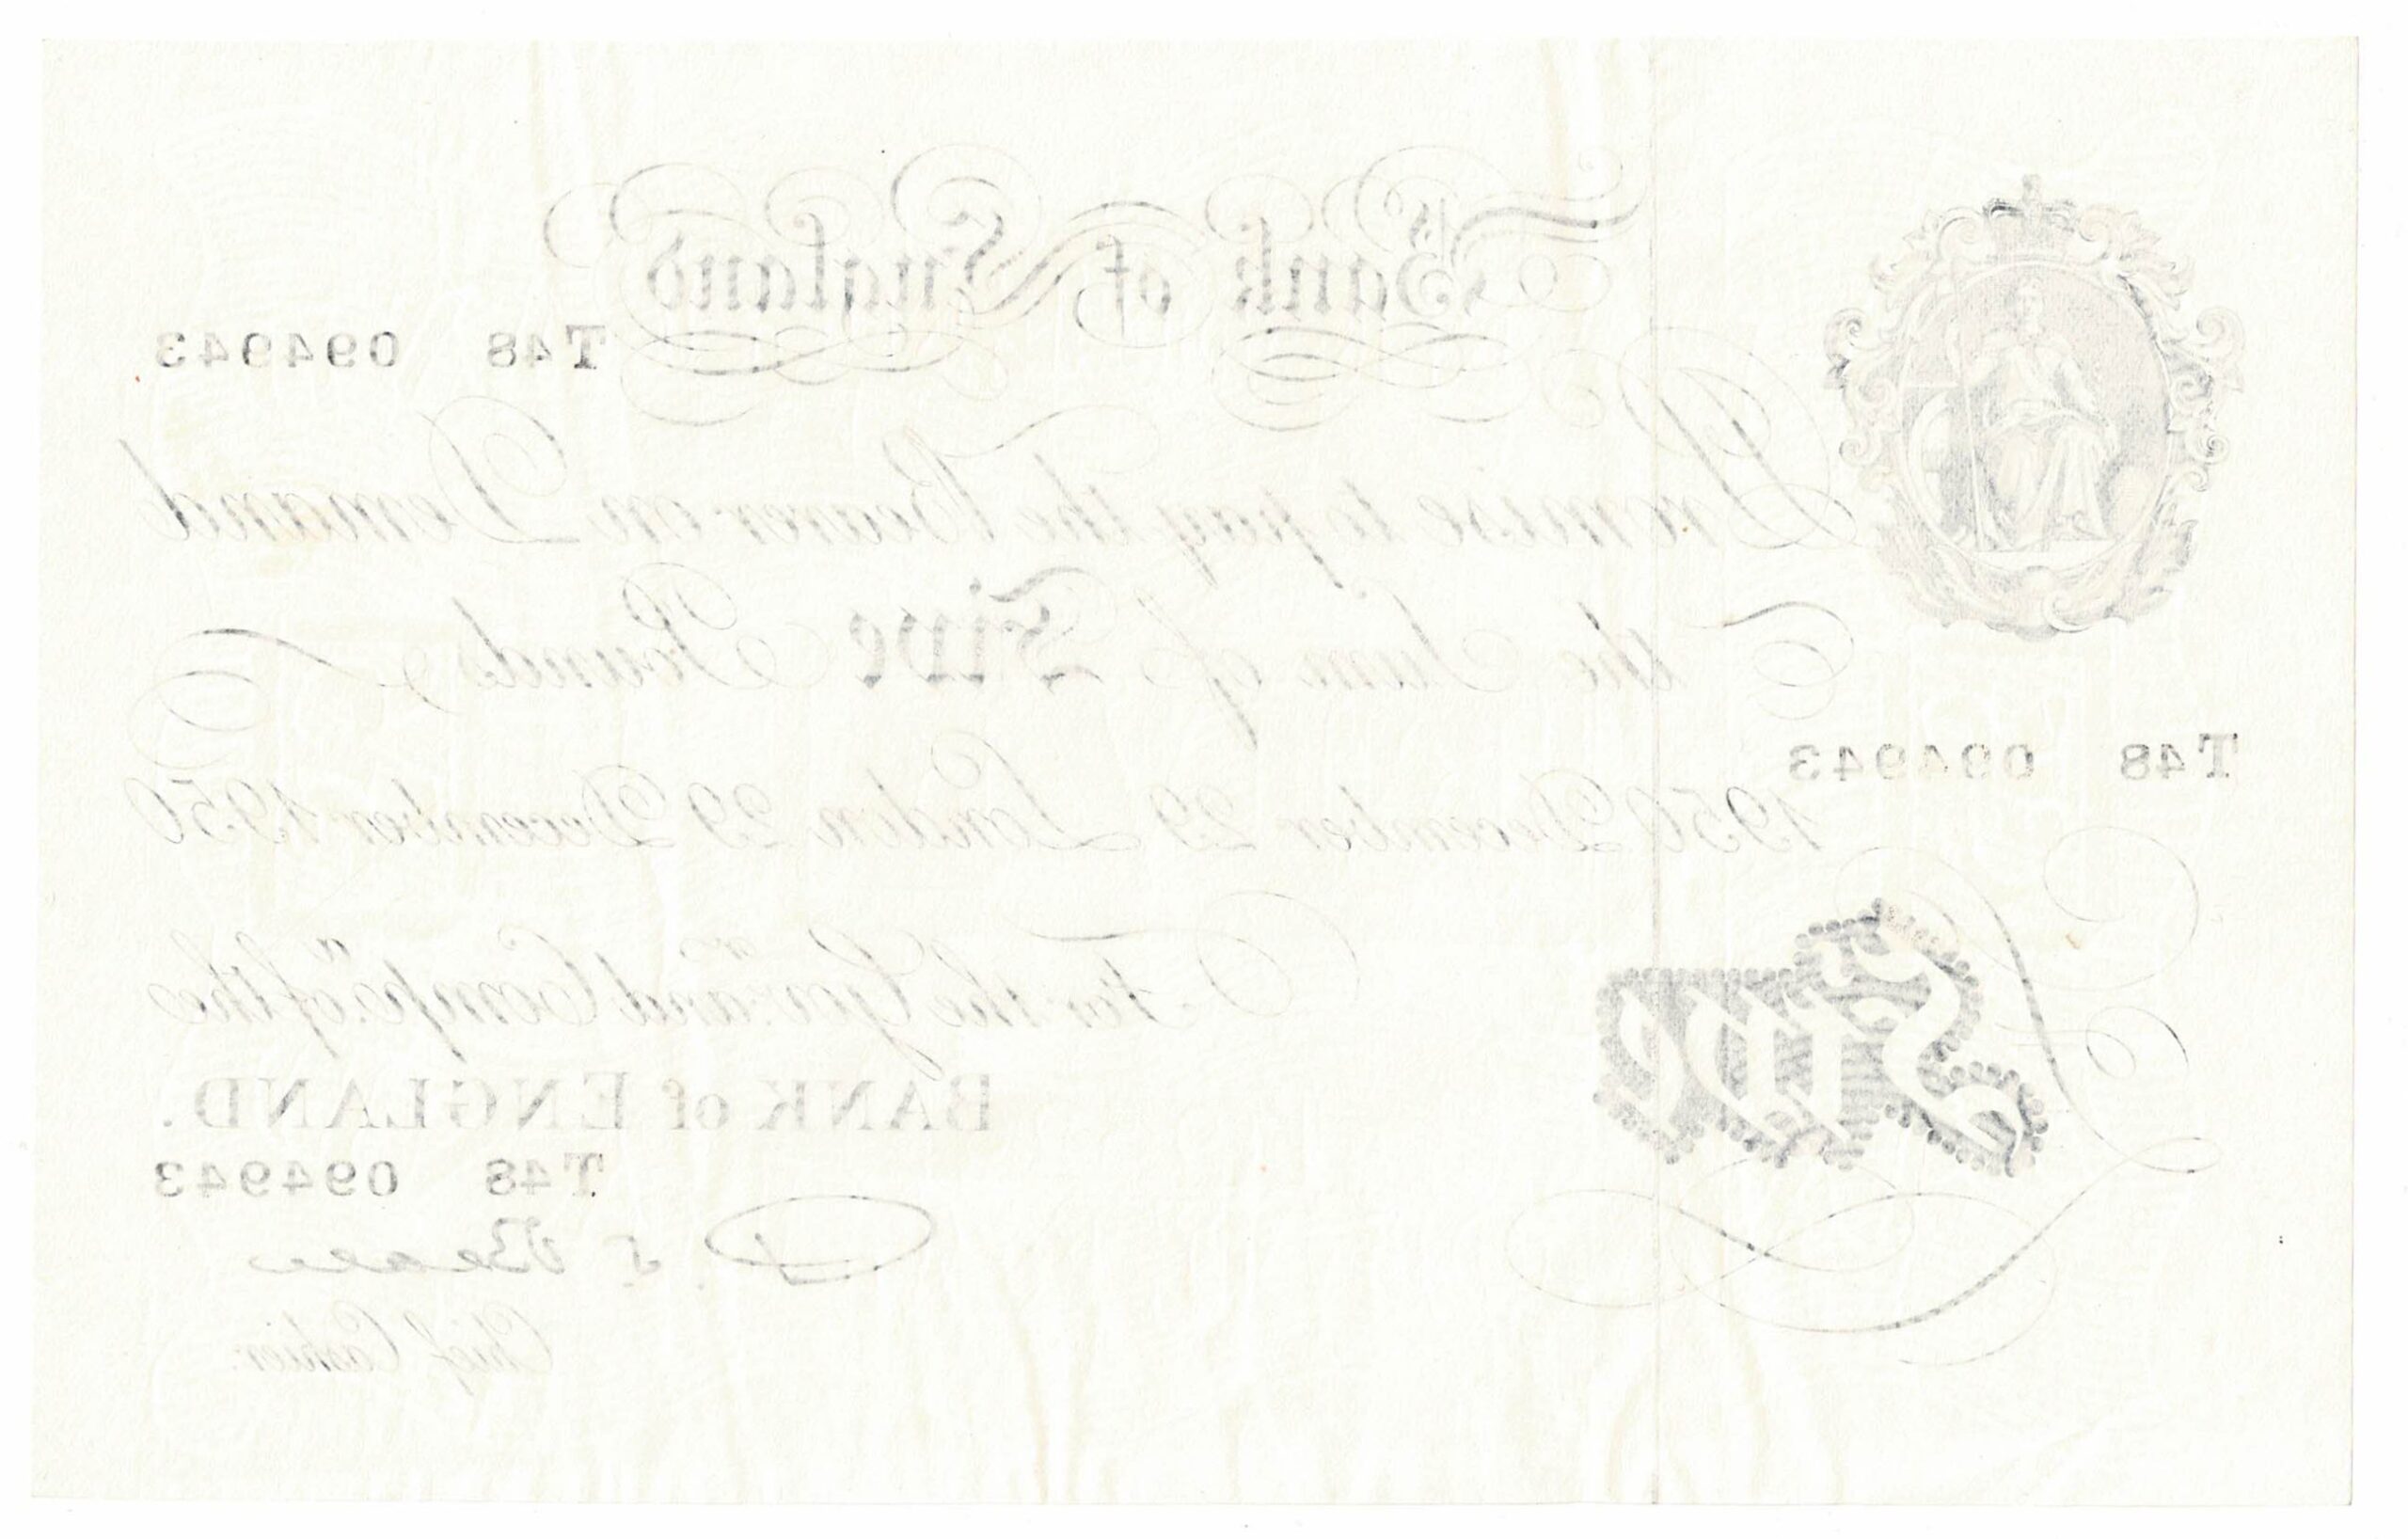 Bank of England
T48 094943
Promise to pay the Bearer on Demand
the Sum of Five Pounds
T48 094943
1950 December 29 London 29 December 1950
For the Govr. and Compa. of the
BANK of ENGLAND.
Five
T48 094943
P S Beale
Chief Cashier.